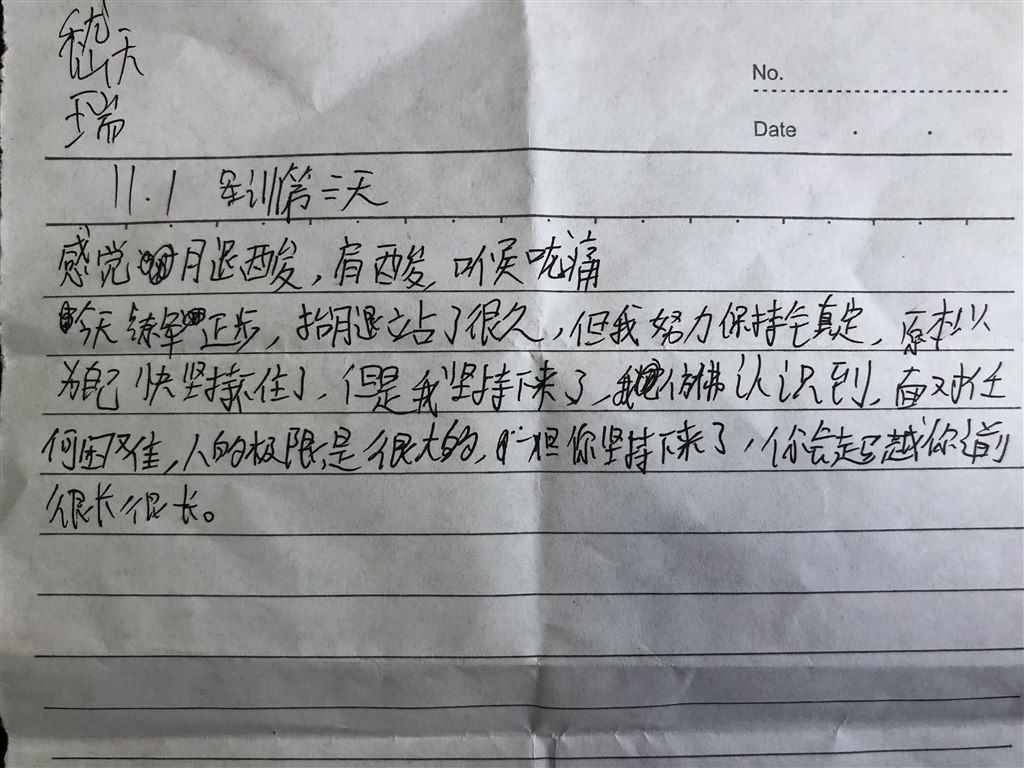 嵇天
瑞
No.
Date . .
11.1 军训第三天
感觉腿酸，肩酸，喉咙痛
今天练军正步，抬腿站了很久，但我努力保持住真定，原本以
为自己快坚持不住了，但是我坚持下来了，我仿佛认识到，面对任
何困难，人的极限是很大的，一旦你坚持下来了，你会超越你前
很长很长。